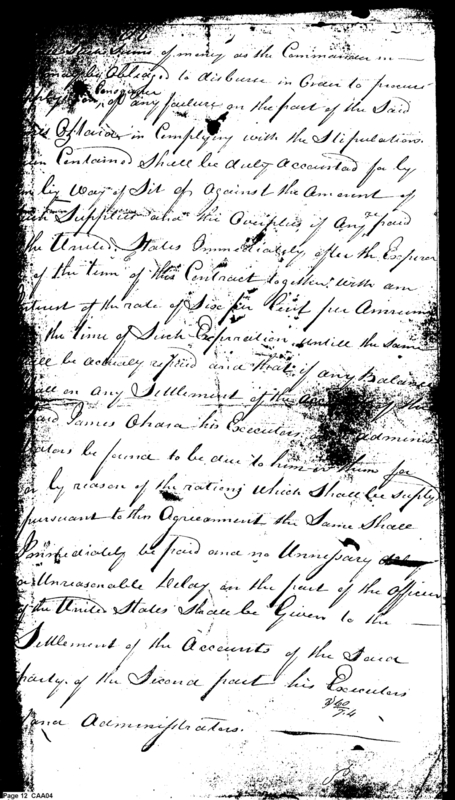 Sums of money as the Commander in
Obliged to disburse in Order to procure
Consequence
of any failure on the part of the Said
Ohara in Complying with the Stipulations
Contained Shall be duly Accounted for by
by way of Set of Against the Amount of
Supplies and the Overplus if Any paid
the United States Immediately after the Expira
of the time of this Contract together with an
Interest at the rate of Six per Cent per Annum
the time of Such Expiration untill the Same
be actually refund and that if any Balance
on any Settlement of the
James Ohara his Executors adminis
trators be found to be due to him or them for
or by reason of the rations which Shall be Supply
pursuant to this Agreeament the Same Shall
Immediately be paid and no Unnessary
a Unreasonable Delay on the part of the Officers
of the United States Shall be Given to the
Settlement of the Accounts of the Said
party of the Second part his Executors
and Administrators.
Page 12 CAA04